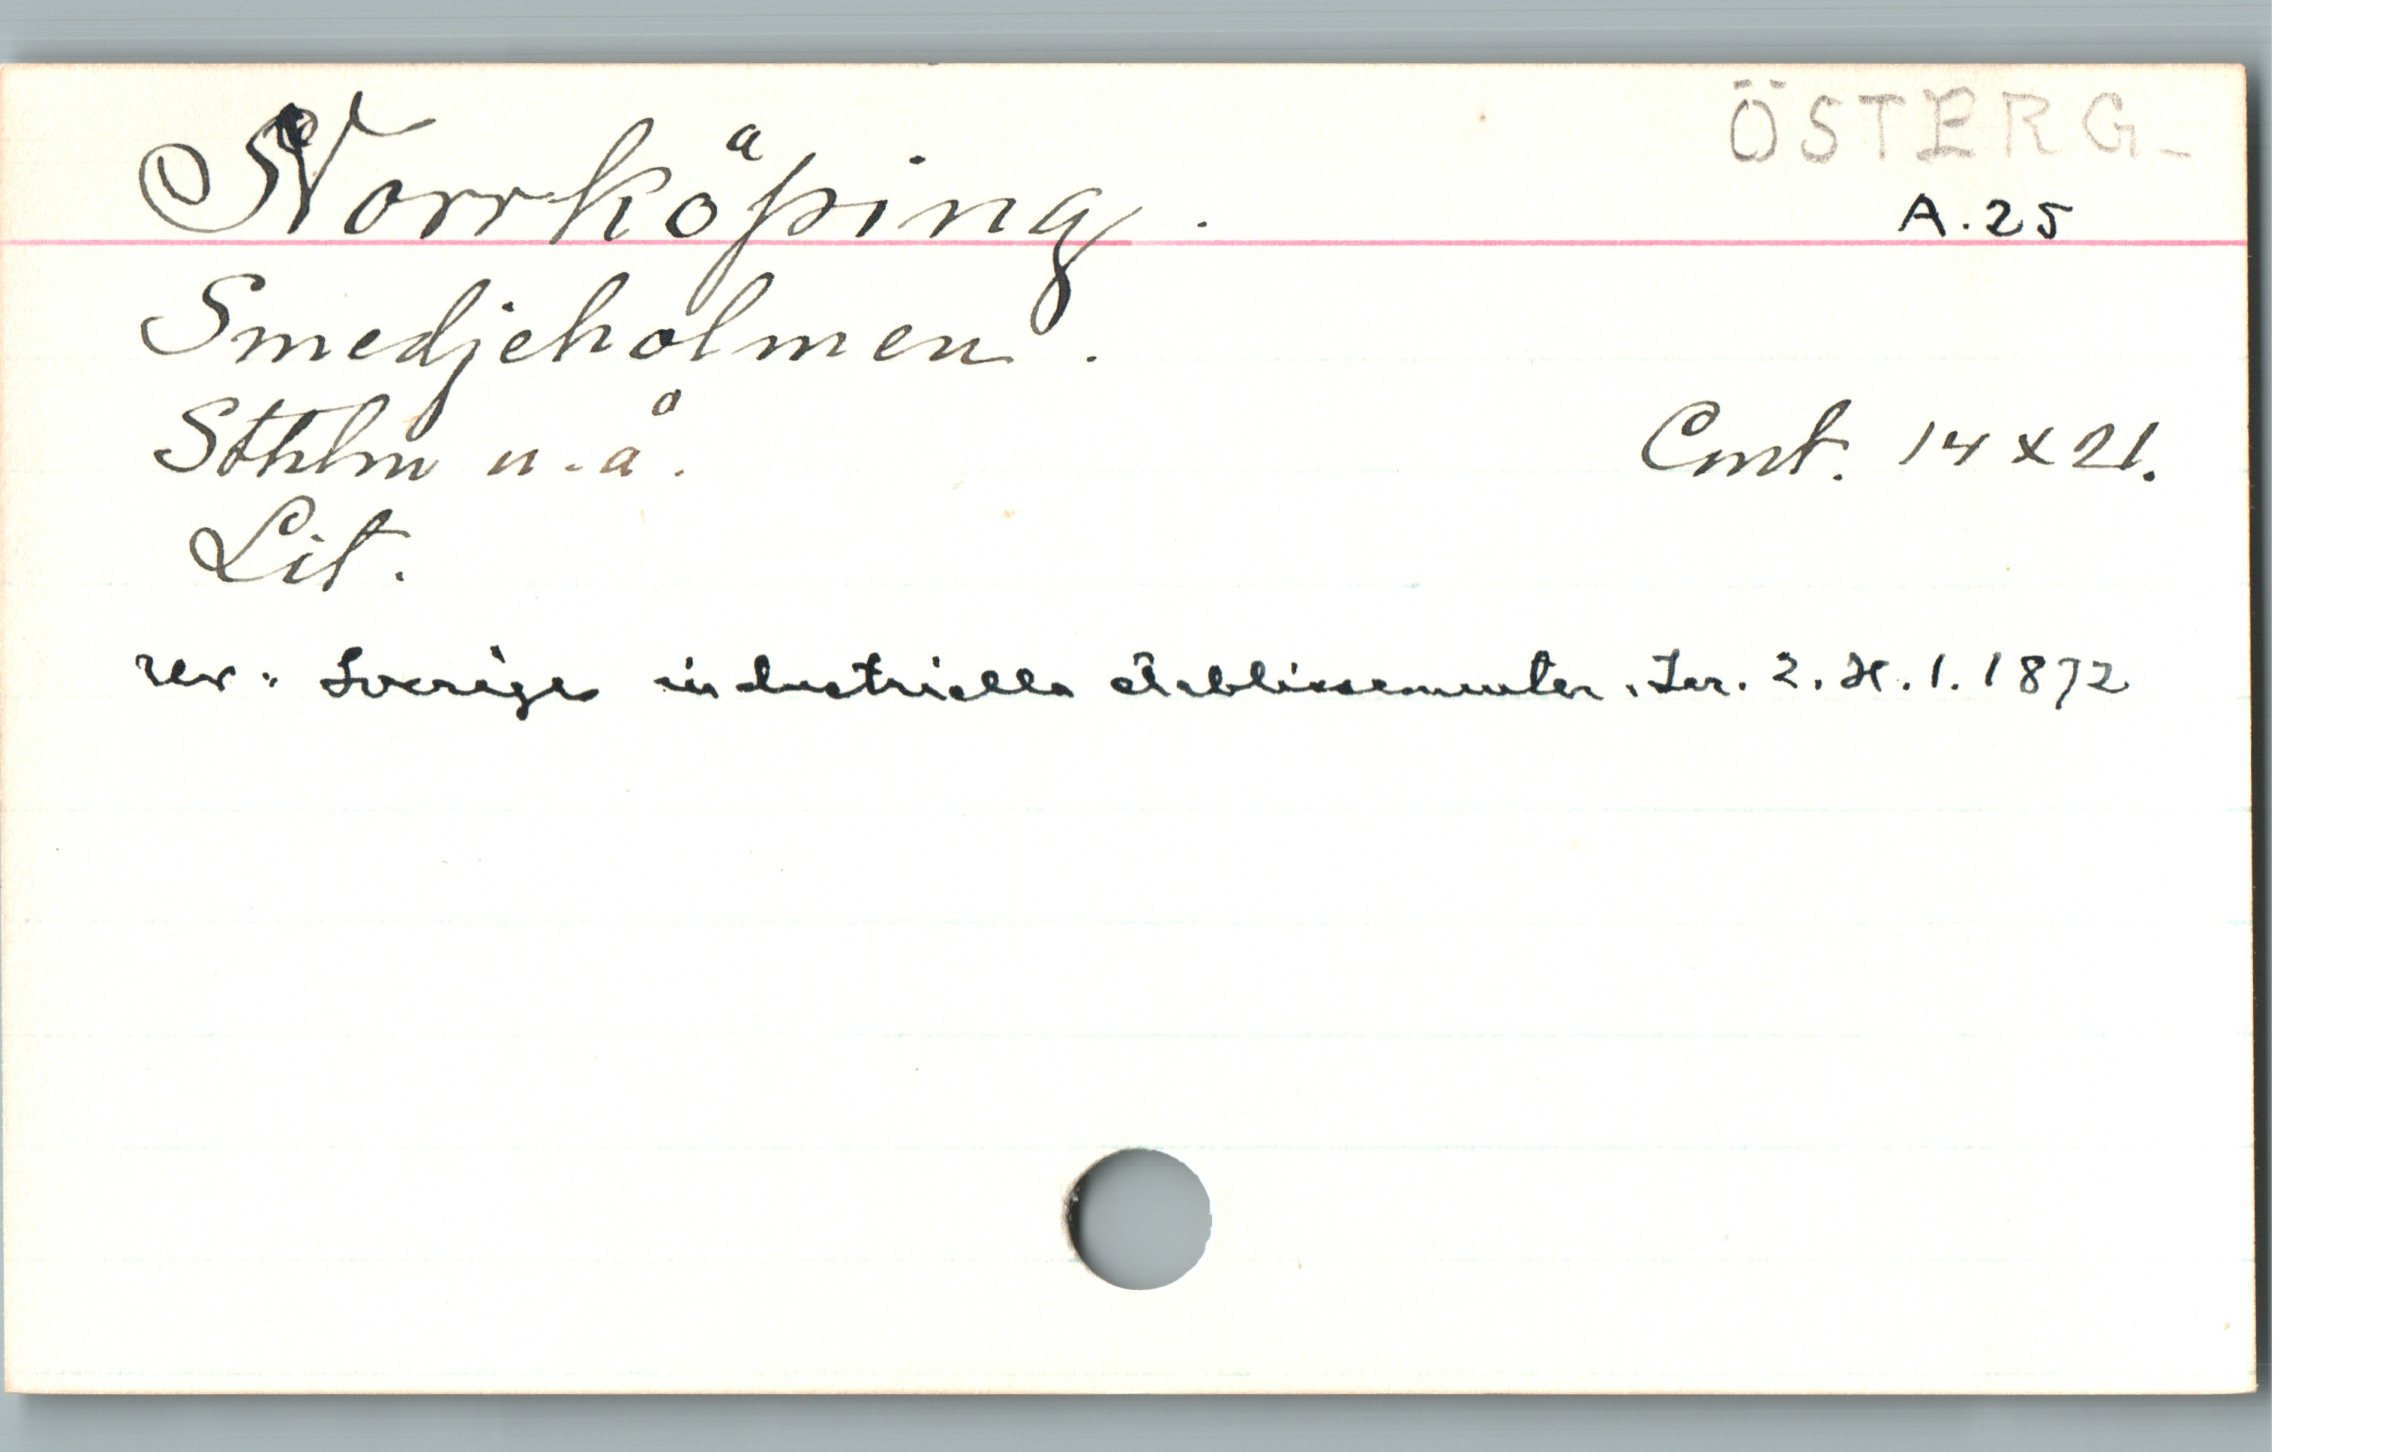 ÖSTERG.
Norrköping.
A.25
Smedjeholmen.
Sthlm u.å. Cmt. 14 x 21.
Lit.
ur: Sveriges industriella etablissementer. Ser. 2. H. 1. 1872